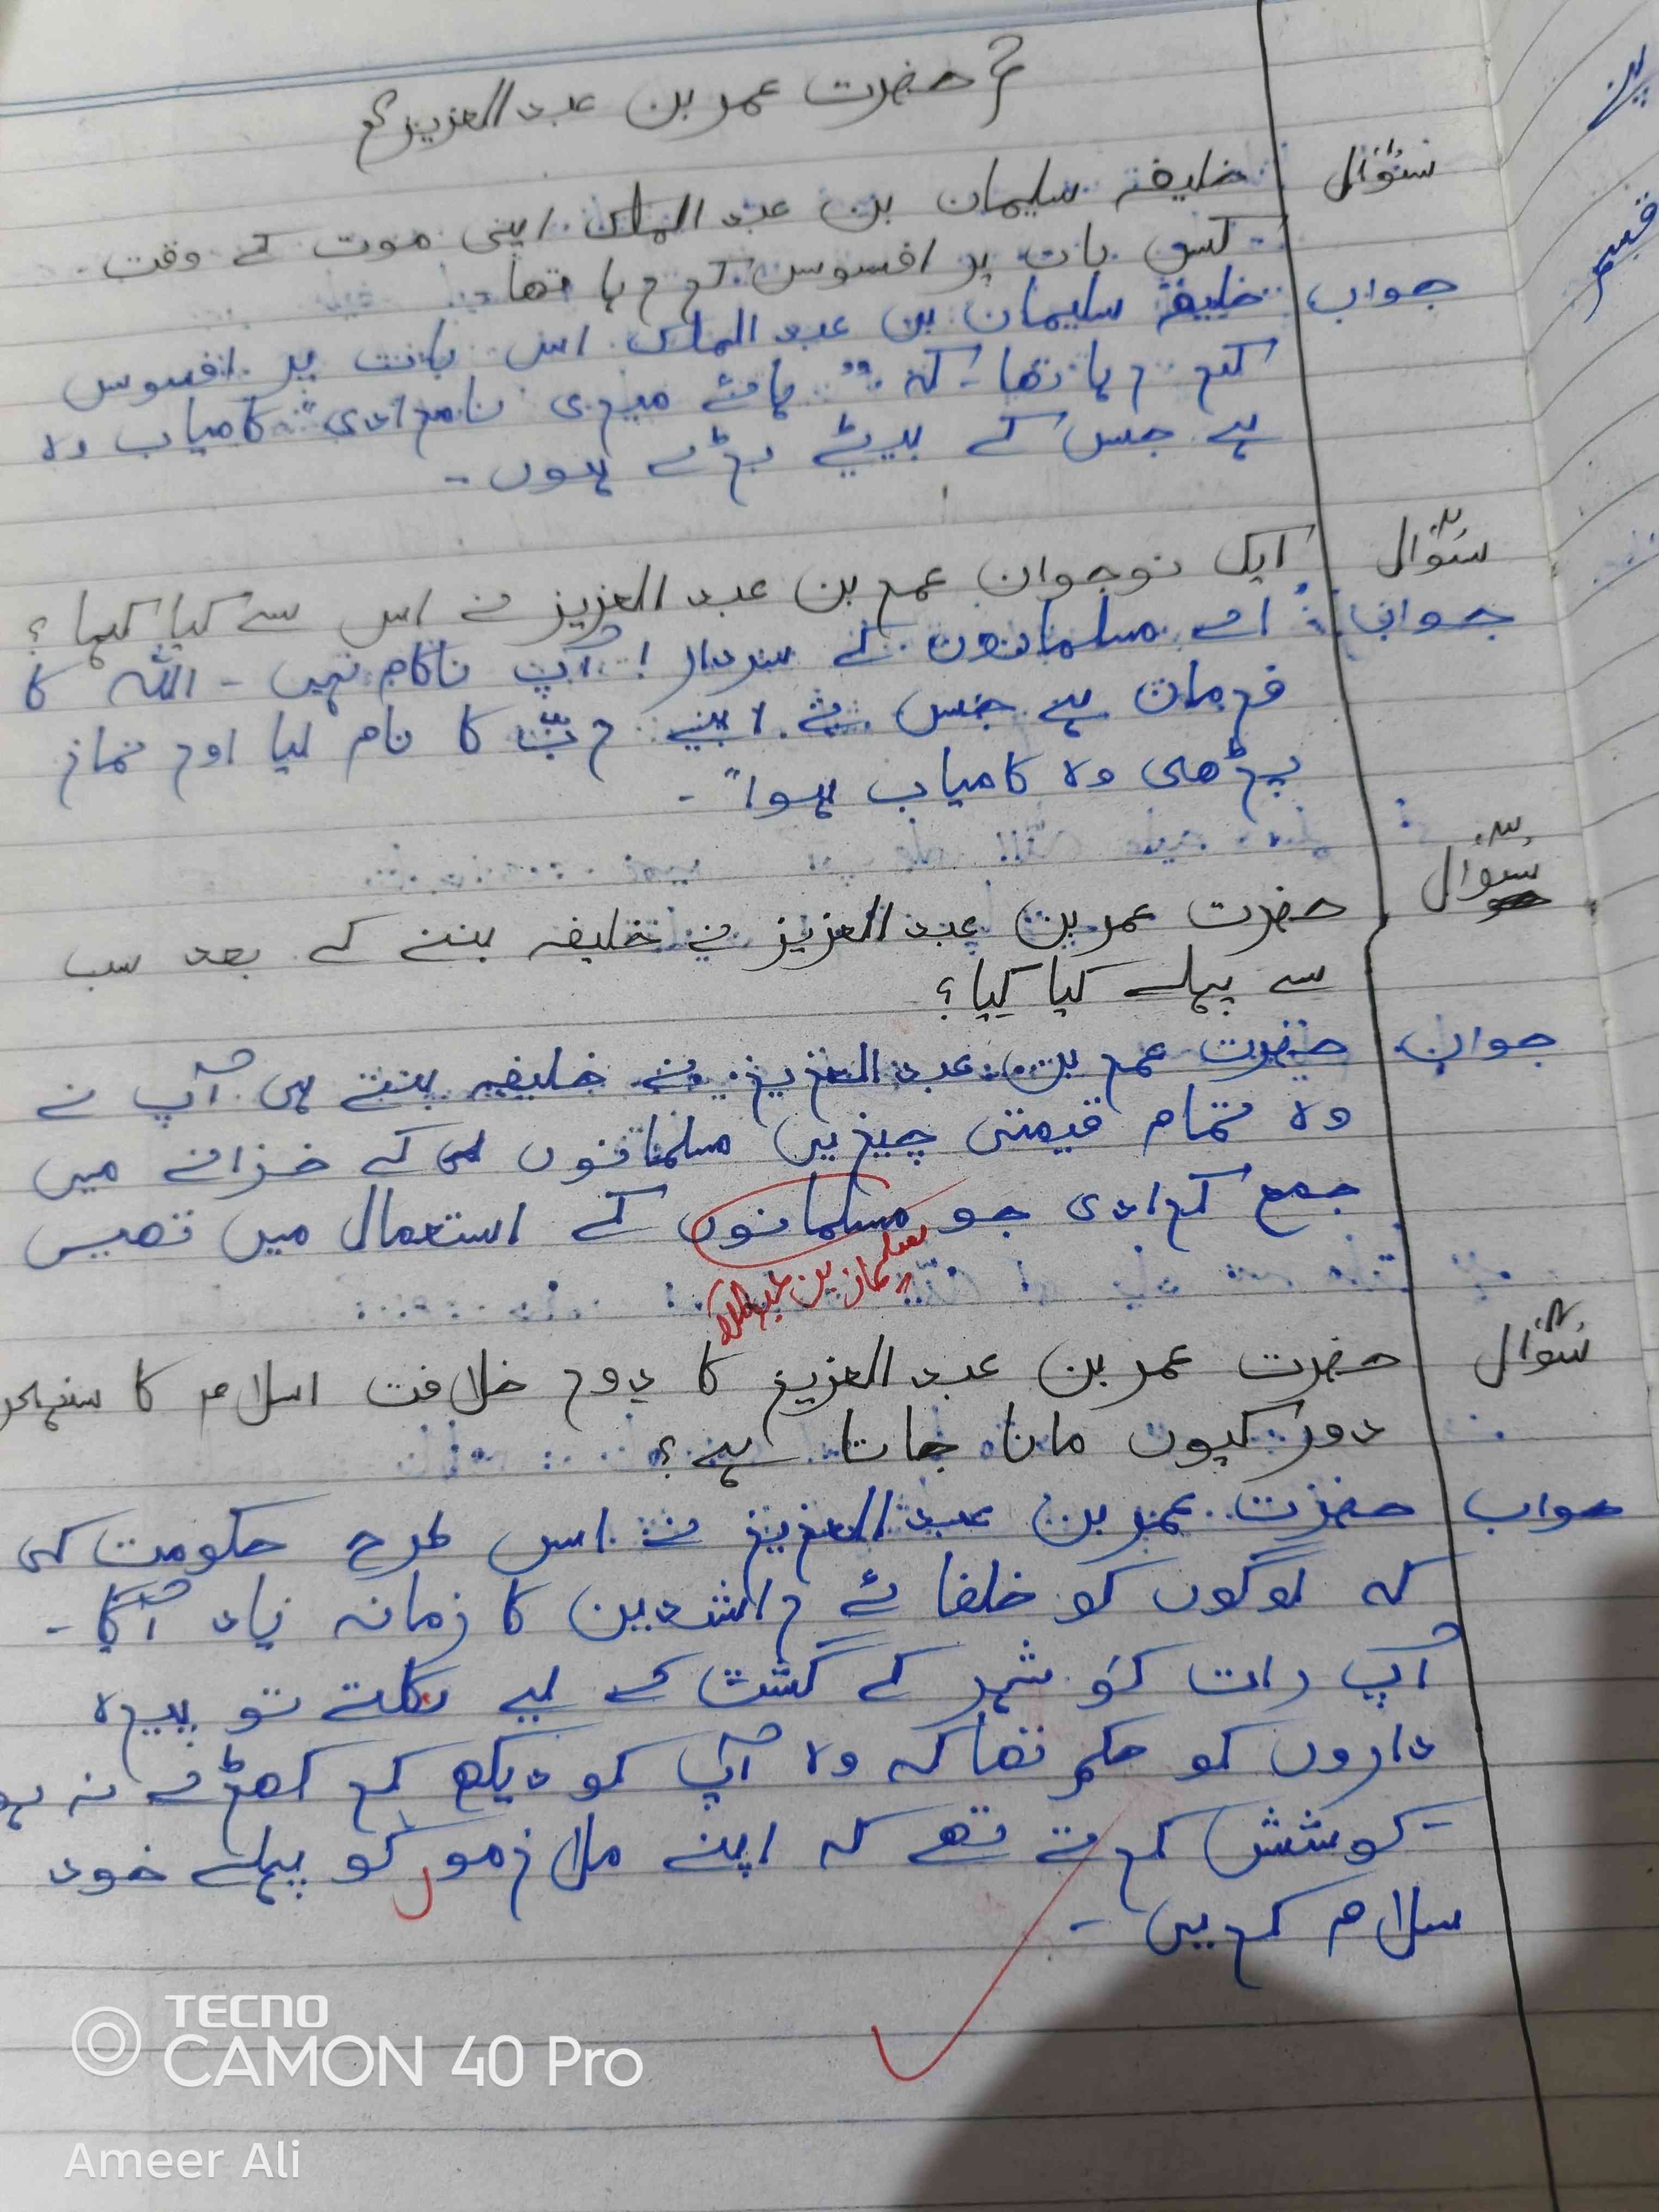 حضرت عمر بن عبد العزیز
سئوال خلیفہ سلیمان بن عبد الملک اپنی موت کے وقت۔
کس بات پر افسوس کر رہا تھا
جواب خلیفہ سلیمان بن عبد الملک اس بات پر افسوس
کر رہا تھا۔ کہ "ہائے میری نامرادی" کامیاب وہ
ہے جس کے بیٹے بڑے ہوں۔
سئوال ایک نوجوان عمر بن عبد العزیز نے اس سے کیا کہا؟
جواب: اے مسلمانوں کے سردار! آپ ناکام نہیں۔ اللہ کا
فرمان ہے جس نے اپنے ربّ کا نام لیا اور نماز
پڑھی وہ کامیاب ہوا"۔
سئوال حضرت عمر بن عبد العزیز نے خلیفہ بننے کے بعد سب
سے پہلے کیا کیا؟
جواب حضرت عمر بن عبد العزیز نے خلیفہ بنتے ہی آپ نے
وہ تمام قیمتی چیزیں مسلمانوں کے خزانے میں
جمع کرادی جو مسلمانوں کے استعمال میں تھیں
سلیمان بن عبدالملک
سئوال حضرت عمر بن عبد العزیز کا دور خلافت اسلام کا سنہری
دور کیوں مانا جاتا ہے؟
جواب حضرت عمر بن عبد العزیز نے اس طرح حکومت کی
کہ لوگوں کو خلفائے راشدین کا زمانہ یاد آگیا۔
آپ رات کو شہر کے گشت کے لیے نکلتے تو پہرہ
داروں کو حکم تھا کہ وہ آپ کو دیکھ کر کھڑے نہ ہو
کوشش کرتے تھے کہ اپنے ملازموں کو پہلے خود
سلام کریں۔
پہ
قسم
TECNO
CAMON 40 Pro
Ameer Ali